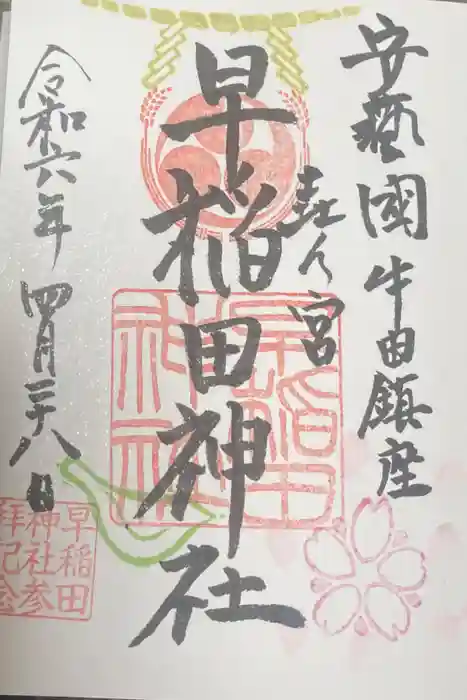 安藝國牛田鎮座
宮
早稲田神社
令和六年四月二十八日
早稲田
神社参
拝記念
早稲田
神社